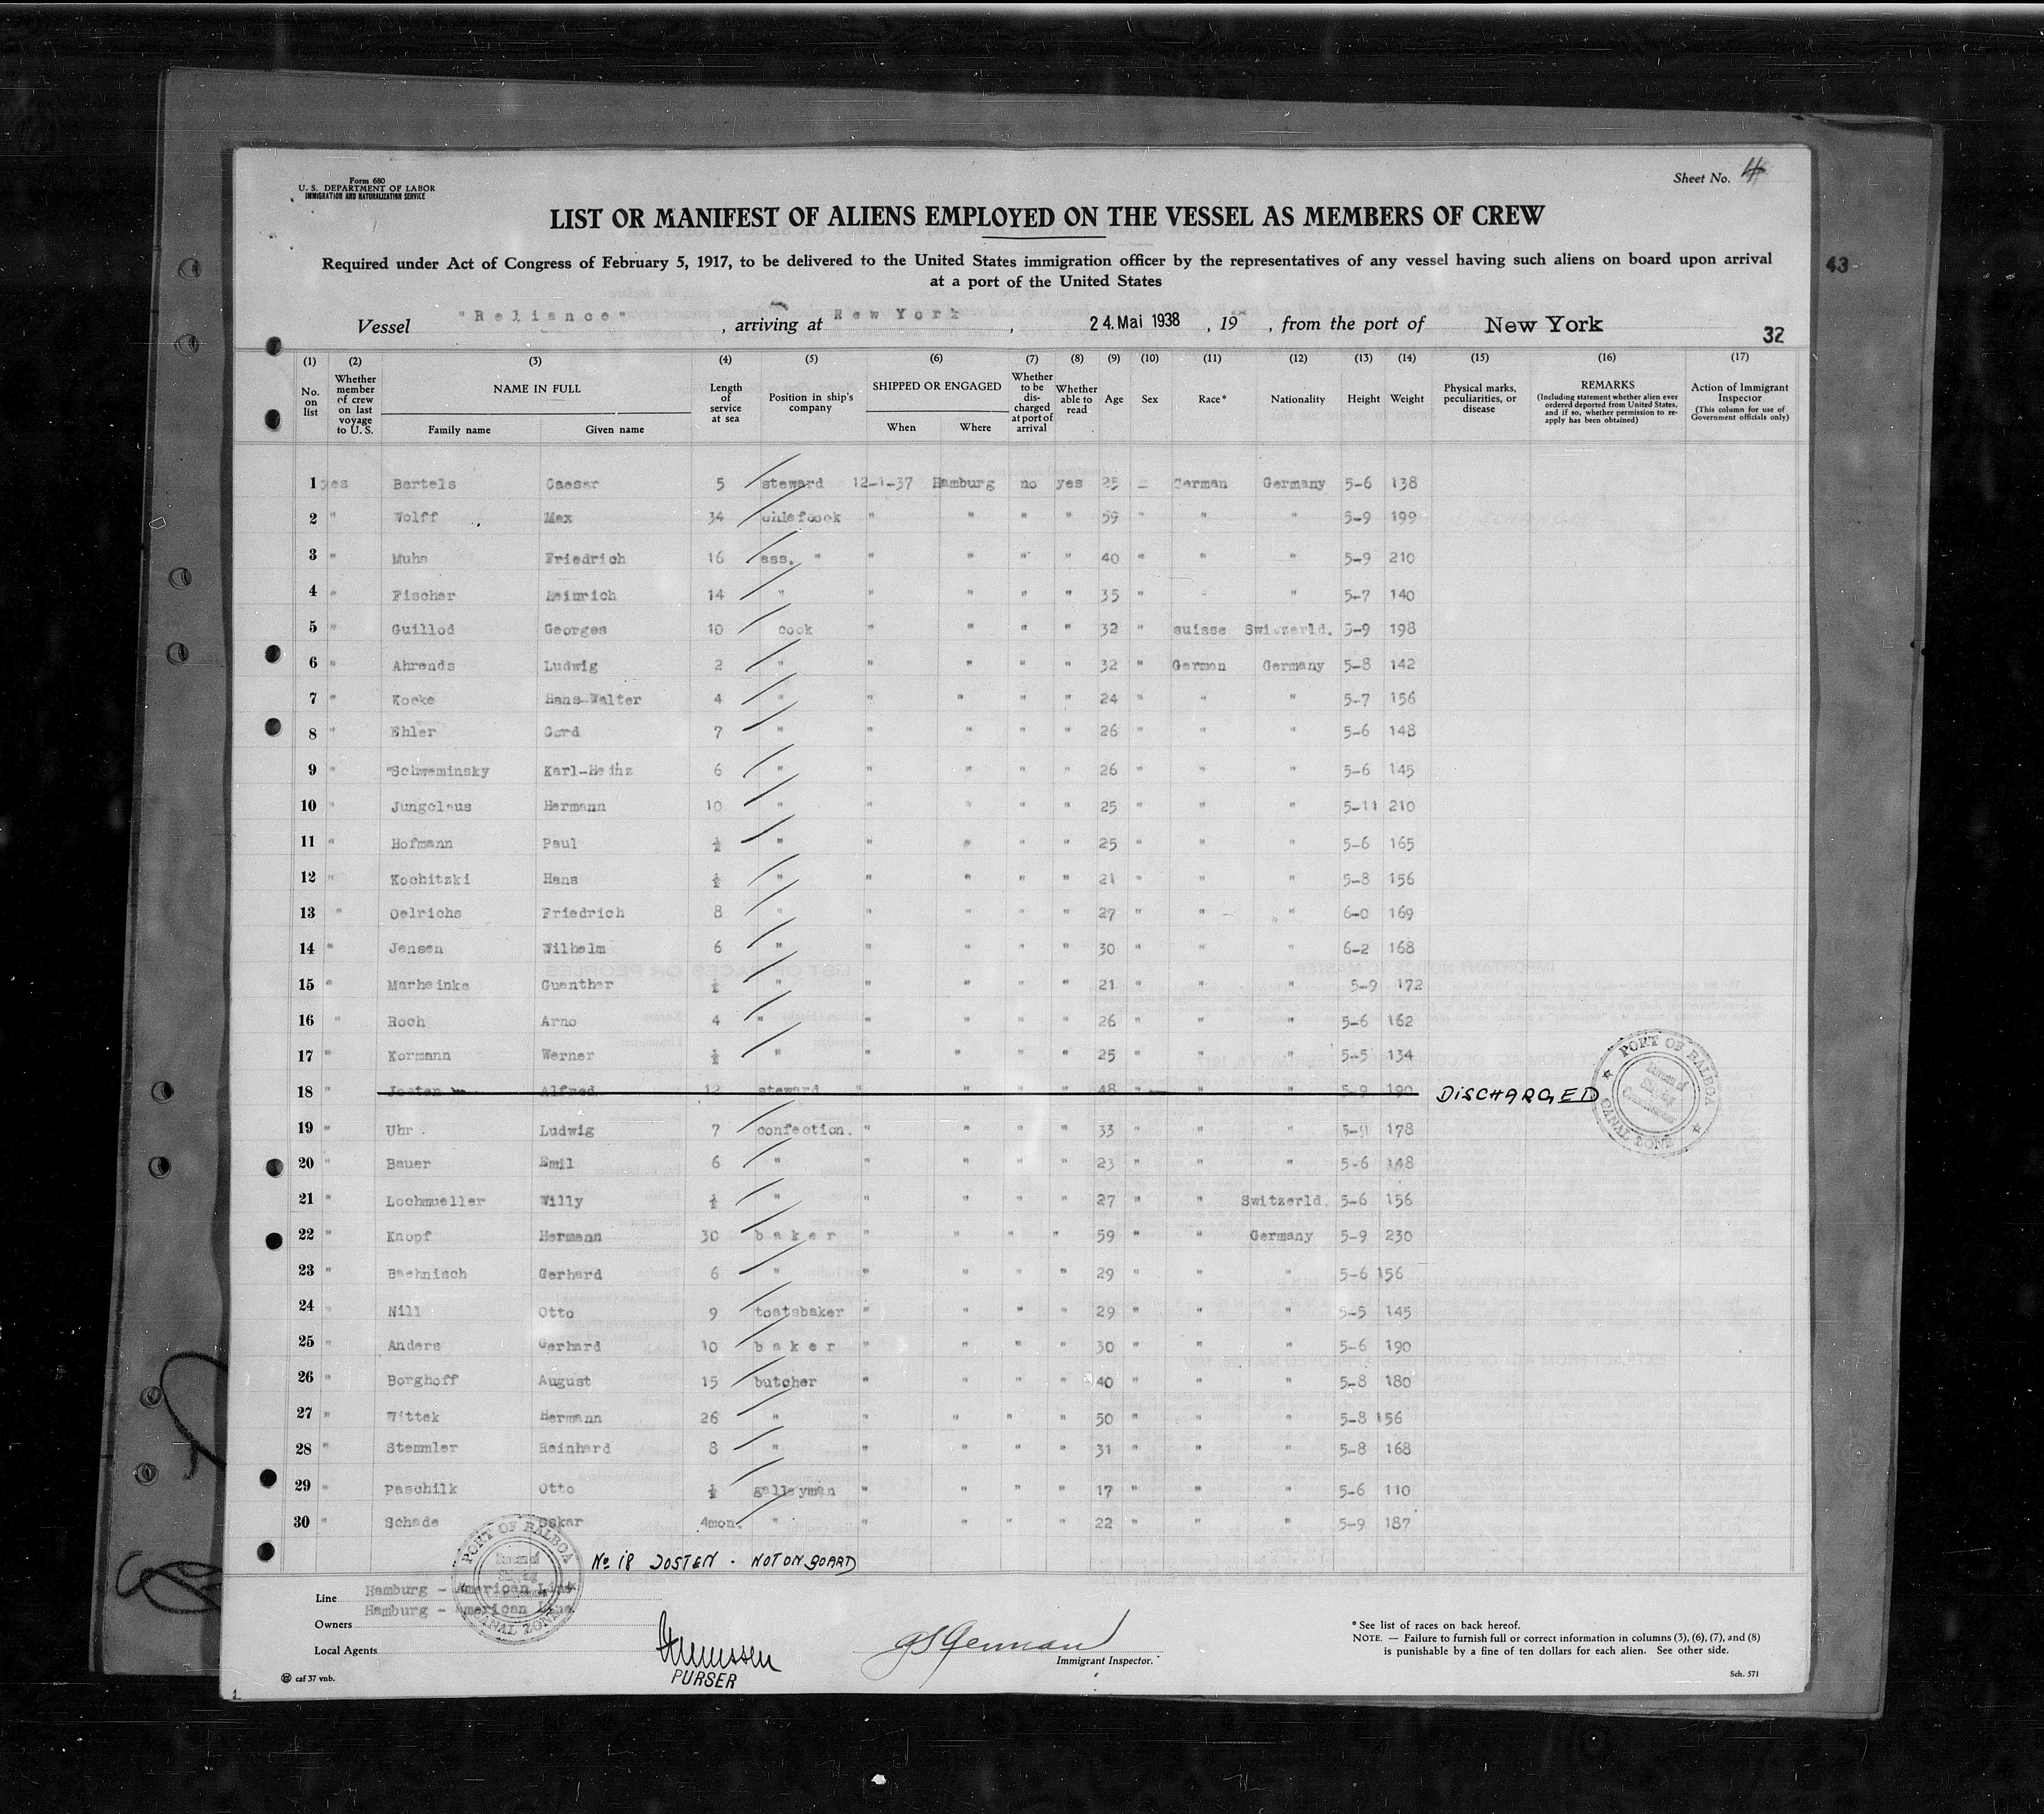 Form 680
U. S. DEPARTMENT OF LABOR
IMMIGRATION AND NATURALIZATION SERVICE
Sheet No. 4
LIST OR MANIFEST OF ALIENS EMPLOYED ON THE VESSEL AS MEMBERS OF CREW
Required under Act of Congress of February 5, 1917, to be delivered to the United States immigration officer by the representatives of any vessel having such aliens on board upon arrival
at a port of the United States
43
Vessel "Reliance", arriving at New York, 24. Mai 1938, 19 , from the port of New York
32
(1) (2) (3) (4) (5) (6) (7) (8) (9) (10) (11) (12) (13) (14) (15) (16) (17)
No. on list | Whether member of crew on last voyage to U. S. | NAME IN FULL Family name Given name | Length of service at sea | Position in ship's company | SHIPPED OR ENGAGED When Where | Whether to be discharged at port of arrival | Whether able to read | Age | Sex | Race* | Nationality | Height | Weight | Physical marks, peculiarities, or disease | REMARKS (Including statement whether alien ever ordered deported from United States, and if so, whether permission to re-apply has been obtained) | Action of Immigrant Inspector (This column for use of Government officials only)
1 yes Bartels Caesar 5 steward 12-1-37 Hamburg no yes 25 German Germany 5-6 138
2 " Wolff Max 34 chiefcook " " " " 59 " " " 5-9 199
3 " Muhs Friedrich 16 ass. " " " " " 40 " " " 5-9 210
4 " Fischer Heinrich 14 " " " " " 35 " " " 5-7 140
5 " Guillod Georges 10 cook " " " " 32 " suisse Switzerld. 5-9 198
6 " Ahrends Ludwig 2 " " " " " 32 " German Germany 5-8 142
7 " Koeke Hans-Walter 4 " " " " " 24 " " " 5-7 156
8 " Ehler Gerd 7 " " " " " 26 " " " 5-6 148
9 " "Schweminsky Karl-Heinz 6 " " " " " 26 " " " 5-6 145
10 " Jungclaus Hermann 10 " " " " " 25 " " " 5-11 210
11 " Hofmann Paul ½ " " " " " 25 " " " 5-6 165
12 " Kochitzki Hans ½ " " " " " 21 " " " 5-8 156
13 " Oelrichs Friedrich 8 " " " " " 27 " " " 6-0 169
14 " Jensen Wilhelm 6 " " " " " 30 " " " 6-2 168
15 " Marheinke Guenther ½ " " " " " 21 " " " 5-9 172
16 " Roch Arno 4 " " " " " 26 " " " 5-6 162
17 " Kormann Werner ½ " " " " " 25 " " " 5-5 134
18 Josten Alfred 12 steward " " " " 48 " " " 5-9 190 DISCHARGED
19 " Uhr Ludwig 7 confection. " " " " 33 " " " 5-11 178
20 " Bauer Emil 6 " " " " " 23 " " " 5-6 148
21 " Lochmueller Willy ½ " " " " " 27 " " Switzerld. 5-6 156
22 " Knopf Hermann 30 baker " " " " 59 " " Germany 5-9 230
23 " Baehnisch Gerhard 6 " " " " " 29 " " " 5-6 156
24 " Nill Otto 9 toatsbaker " " " " 29 " " " 5-5 145
25 " Anders Gerhard 10 baker " " " " 30 " " " 5-6 190
26 " Borghoff August 15 butcher " " " " 40 " " " 5-8 180
27 " Wittek Hermann 26 " " " " " 50 " " " 5-8 156
28 " Stemmler Reinhard 8 " " " " " 31 " " " 5-8 168
29 " Paschilk Otto ½ galleyman " " " " 17 " " " 5-6 110
30 " Schade Oskar 4mon. " " " " " 22 " " " 5-9 187
PORT OF BALBOA
CANAL ZONE
PORT OF BALBOA
CANAL ZONE
No 18 JOSTEN - NOT ON BOARD
Line Hamburg - American Line
Owners Hamburg - American Line
Local Agents
PURSER
Immigrant Inspector.
*See list of races on back hereof.
NOTE. — Failure to furnish full or correct information in columns (3), (6), (7), and (8)
is punishable by a fine of ten dollars for each alien. See other side.
caf 37 vnb.
Sch. 571
1